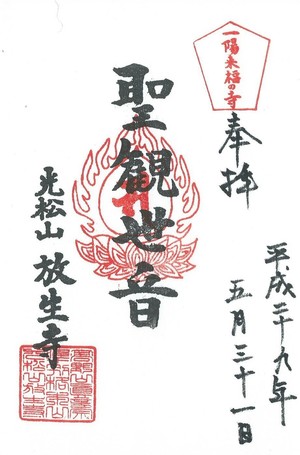 一陽来福の寺
奉拝
平成二十九年
五月三十一日
聖観世音
光松山 放生寺